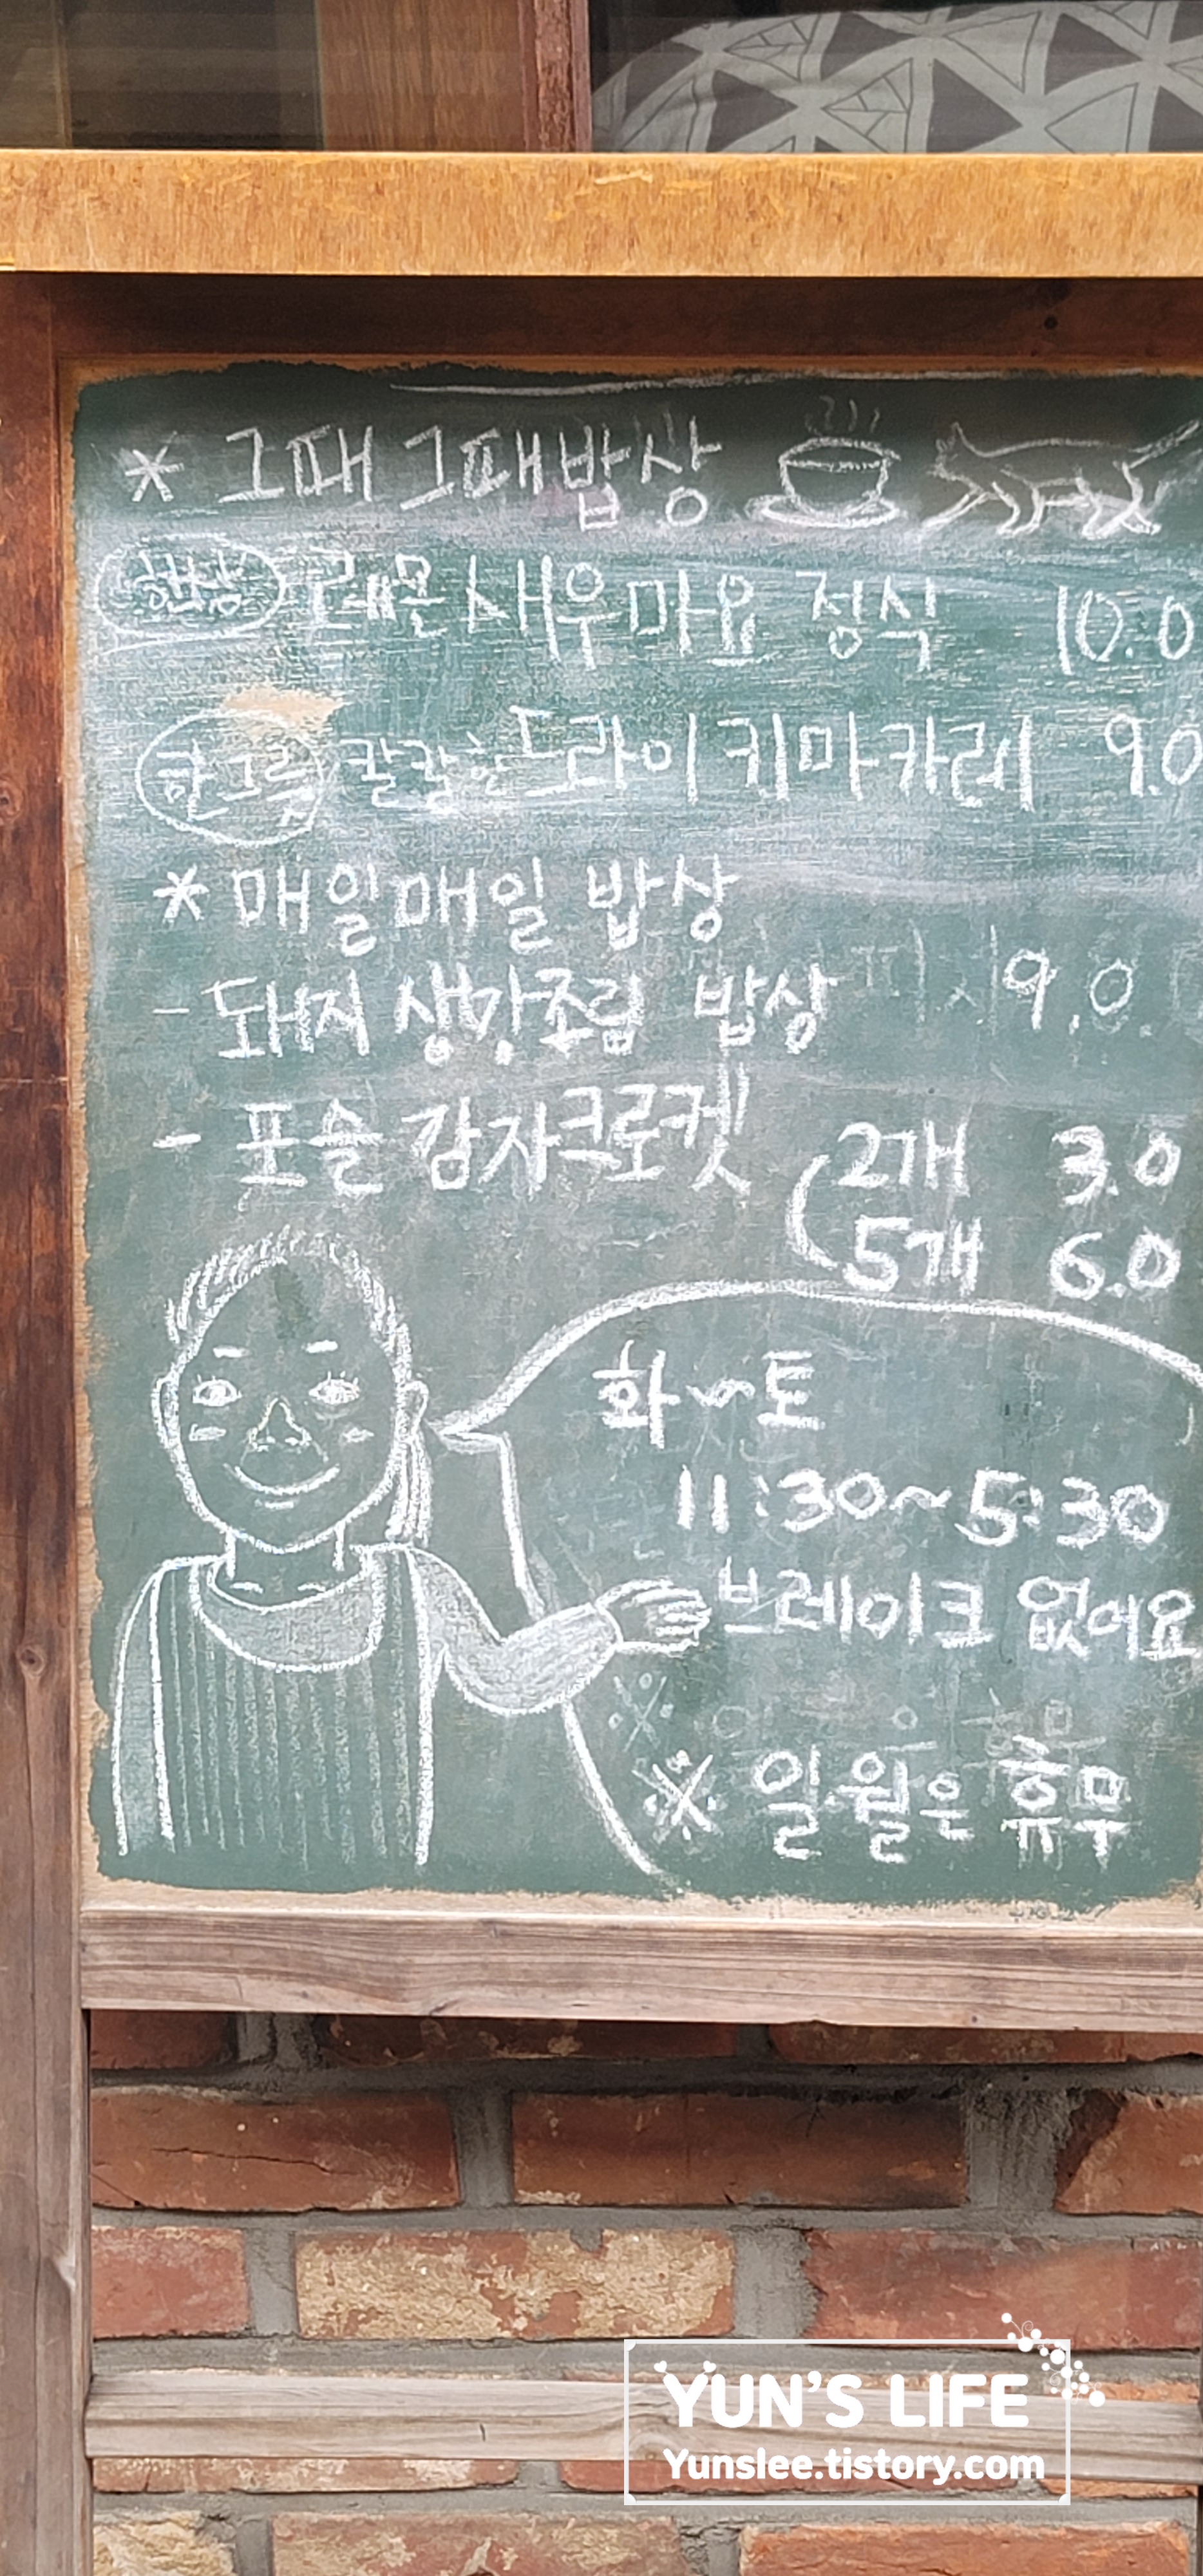 * 그때그때밥상
한상 레몬새우마요 정식 10.0
한그릇 칼칼한 드라이 키마카레 9.0
* 매일매일 밥상
- 돼지 생강조림 밥상 9.0.
- 포슬 감자크로켓
2개 3.0
5개 6.0
화~토
11:30~5:30
브레이크 없어요
※ 일월은 휴무
YUN'S LIFE
Yunslee.tistory.com